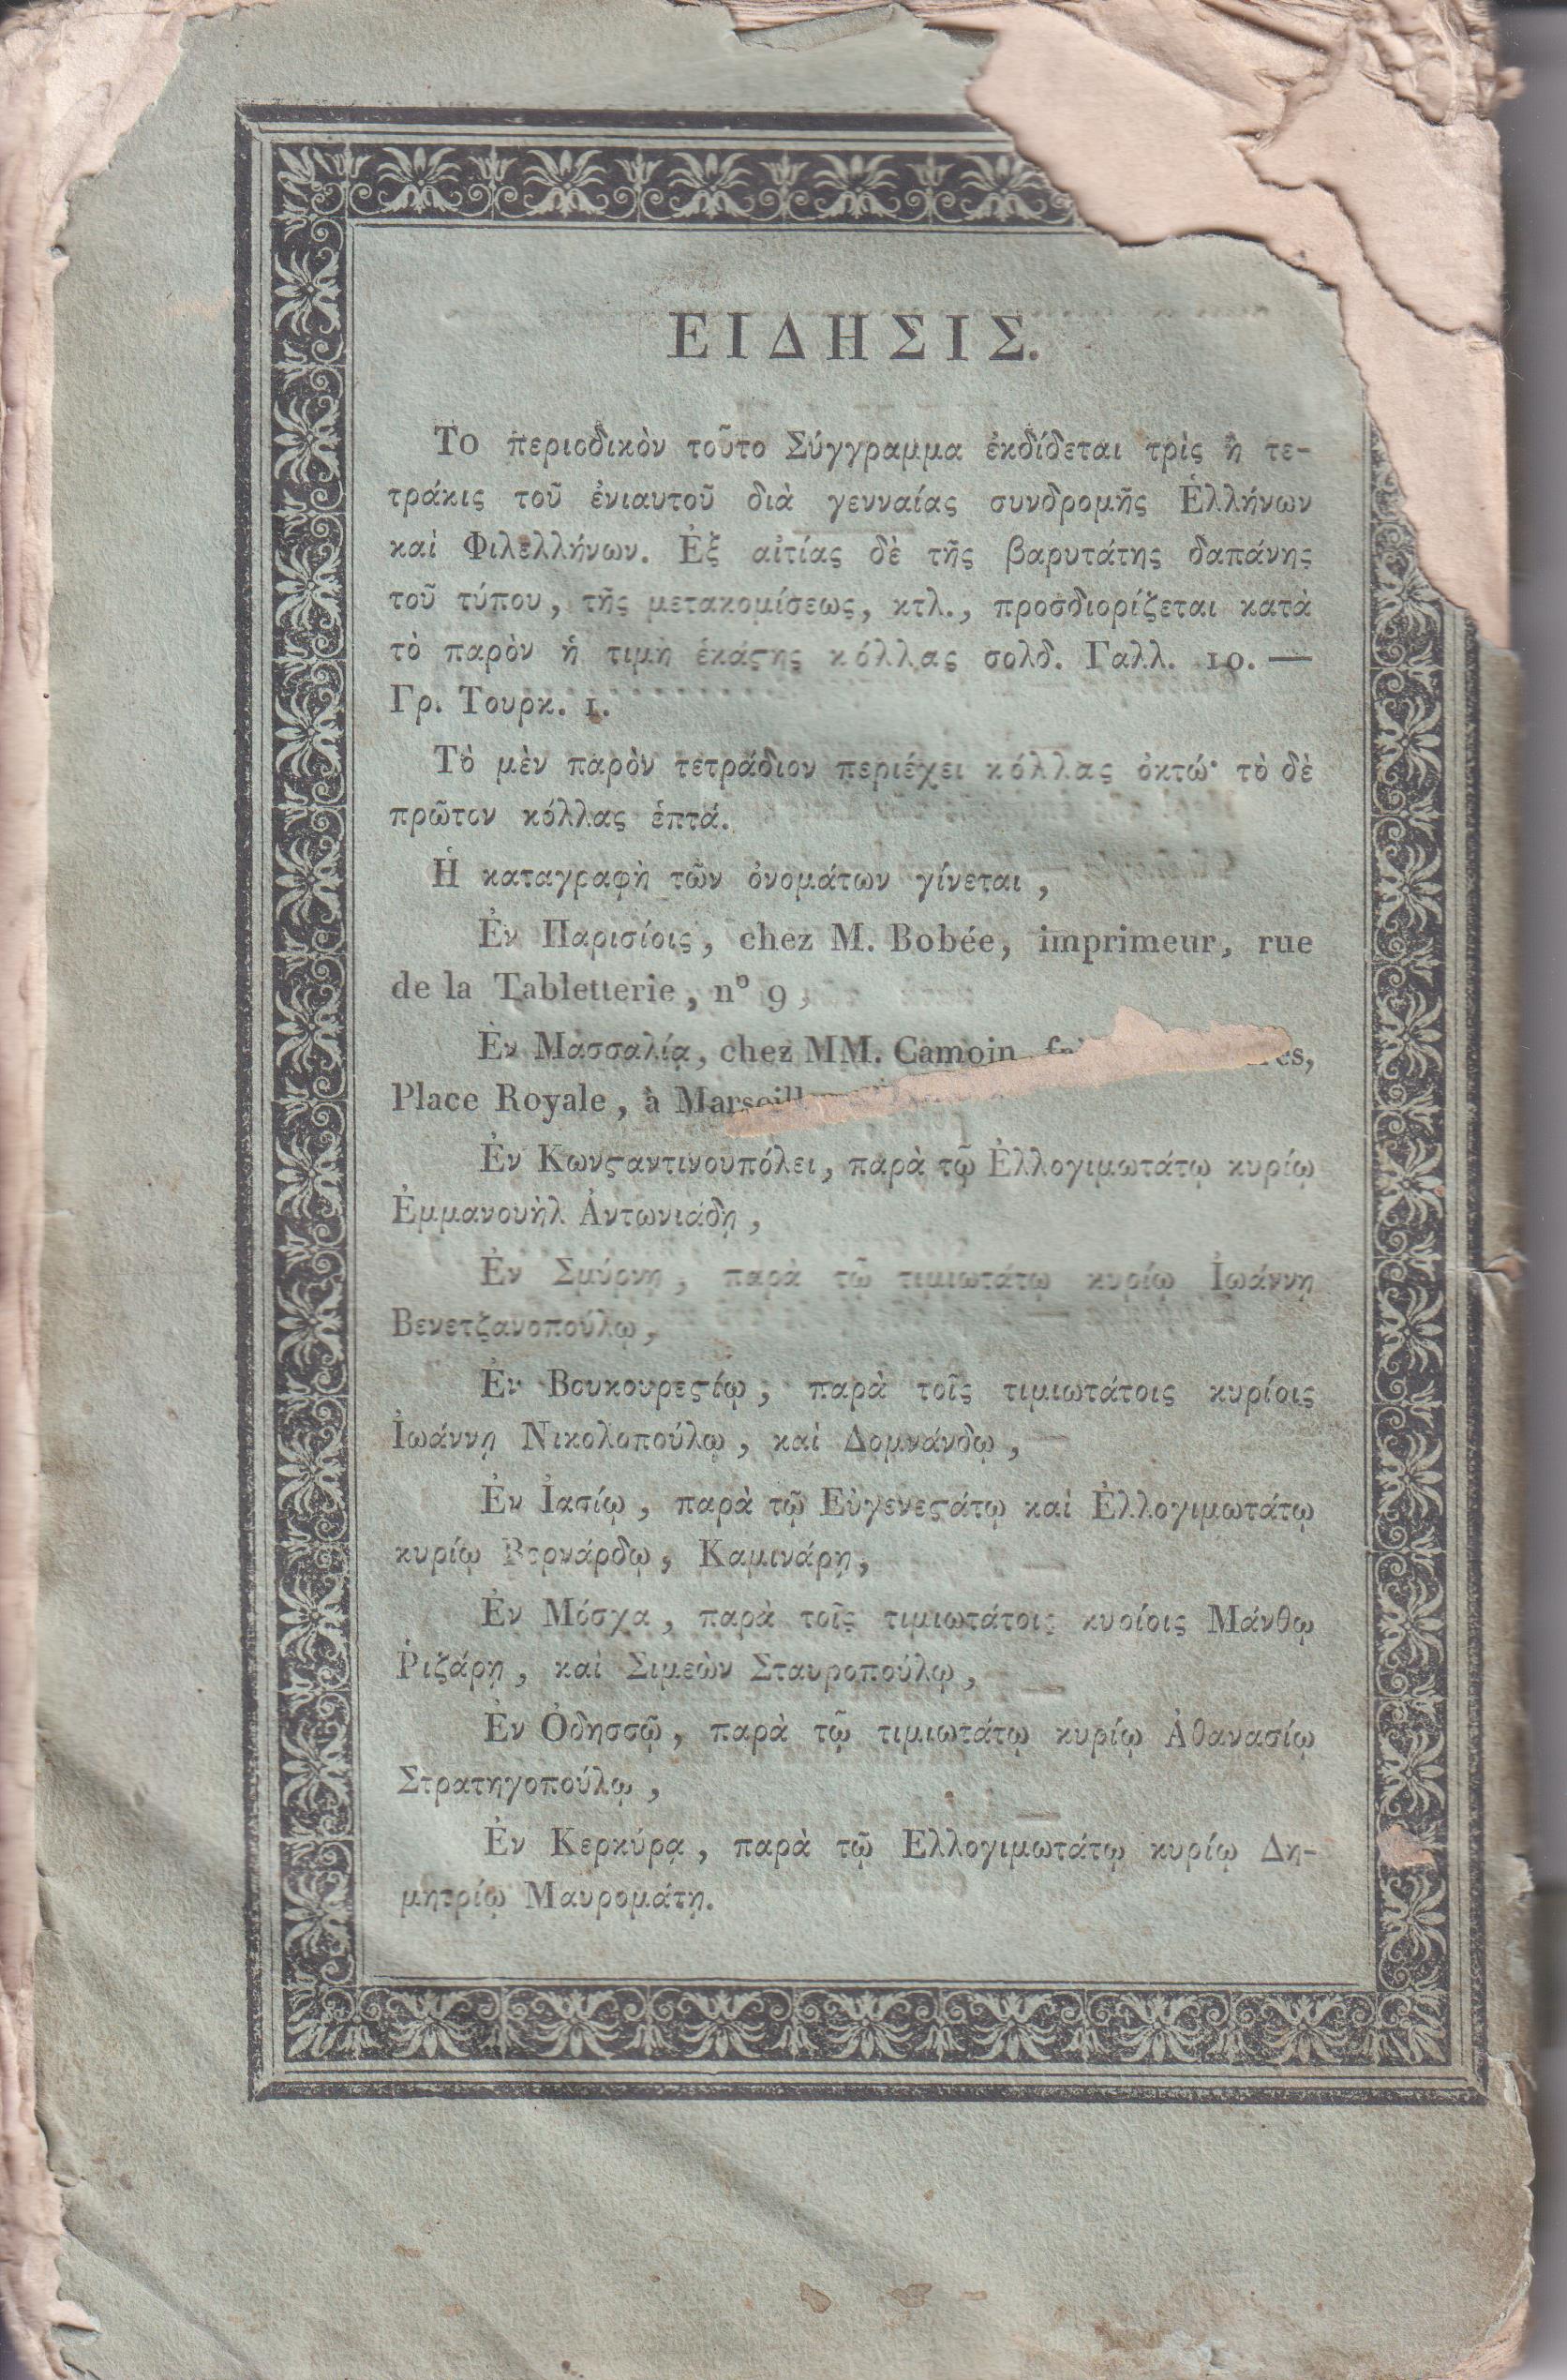 ΕΙΔΗΣΙΣ.
Το περιοδικὸν τοῦτο Σύγγραμμα ἐκδίδεται τρὶς ἢ τε-
τράκις τοῦ ἐνιαυτοῦ διὰ γενναίας συνδρομῆς Ἑλλήνων
καὶ Φιλελλήνων. Ἐξ αἰτίας δὲ τῆς βαρυτάτης δαπάνης
τοῦ τύπου, τῆς μετακομίσεως, κτλ., προσδιορίζεται κατὰ
τὸ παρὸν ἡ τιμὴ ἑκάϛης κόλλας σολδ. Γαλλ. 10. —
Γρ. Τουρκ. 1.
Τὸ μὲν παρὸν τετράδιον περιέχει κόλλας ὀκτώ· τὸ δὲ
πρῶτον κόλλας ἑπτά.
Ἡ καταγραφὴ τῶν ὀνομάτων γίνεται,
Ἐν Παρισίοις, chez M. Bobée, imprimeur, rue
de la Tabletterie, nº 9,
Ἐν Μασσαλίᾳ, chez MM. Camoin
Place Royale, à
Ἐν Κωνϛαντινουπόλει, παρὰ τῷ Ἐλλογιμωτάτῳ κυρίῳ
Ἐμμανουὴλ Ἀντωνιάδῃ,
Ἐν Σμύρνῃ, παρὰ τῷ τιμιωτάτῳ κυρίῳ Ἰωάννῃ
Βενετζανοπούλῳ,
Ἐν Βουκουρεϛίῳ, παρὰ τοῖς τιμιωτάτοις κυρίοις
Ἰωάννῃ Νικολοπούλῳ, καὶ Δομνάνδῳ,
Ἐν Ἰασίῳ, παρὰ τῷ Εὐγενεϛάτῳ καὶ Ἐλλογιμωτάτῳ
κυρίῳ Βερνάρδῳ, Καμινάρῃ,
Ἐν Μόσχᾳ, παρὰ τοῖς τιμιωτάτοις κυρίοις Μάνθῳ
Ῥιζάρῃ, καὶ Σιμεὼν Σταυροπούλῳ,
Ἐν Ὀδησσῷ, παρὰ τῷ τιμιωτάτῳ κυρίῳ Ἀθανασίῳ
Στρατηγοπούλῳ,
Ἐν Κερκύρᾳ, παρὰ τῷ Ἐλλογιμωτάτῳ κυρίῳ Δη-
μητρίῳ Μαυρομάτῃ.